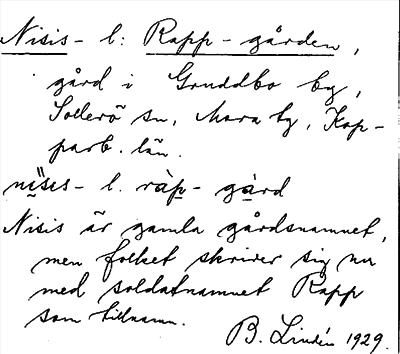 Nisis- l: Rapp-gården,
gård i Gruddbo by,
Sollerö sn, Mora tg, Kop-
parb. län.
nisis- l. ràp- gàrd
Nisis är gamla gårdsnamnet,
men folket skriver sig nu
med soldatnamnet Rapp
som tillnamn.
B. Lindén 1929.